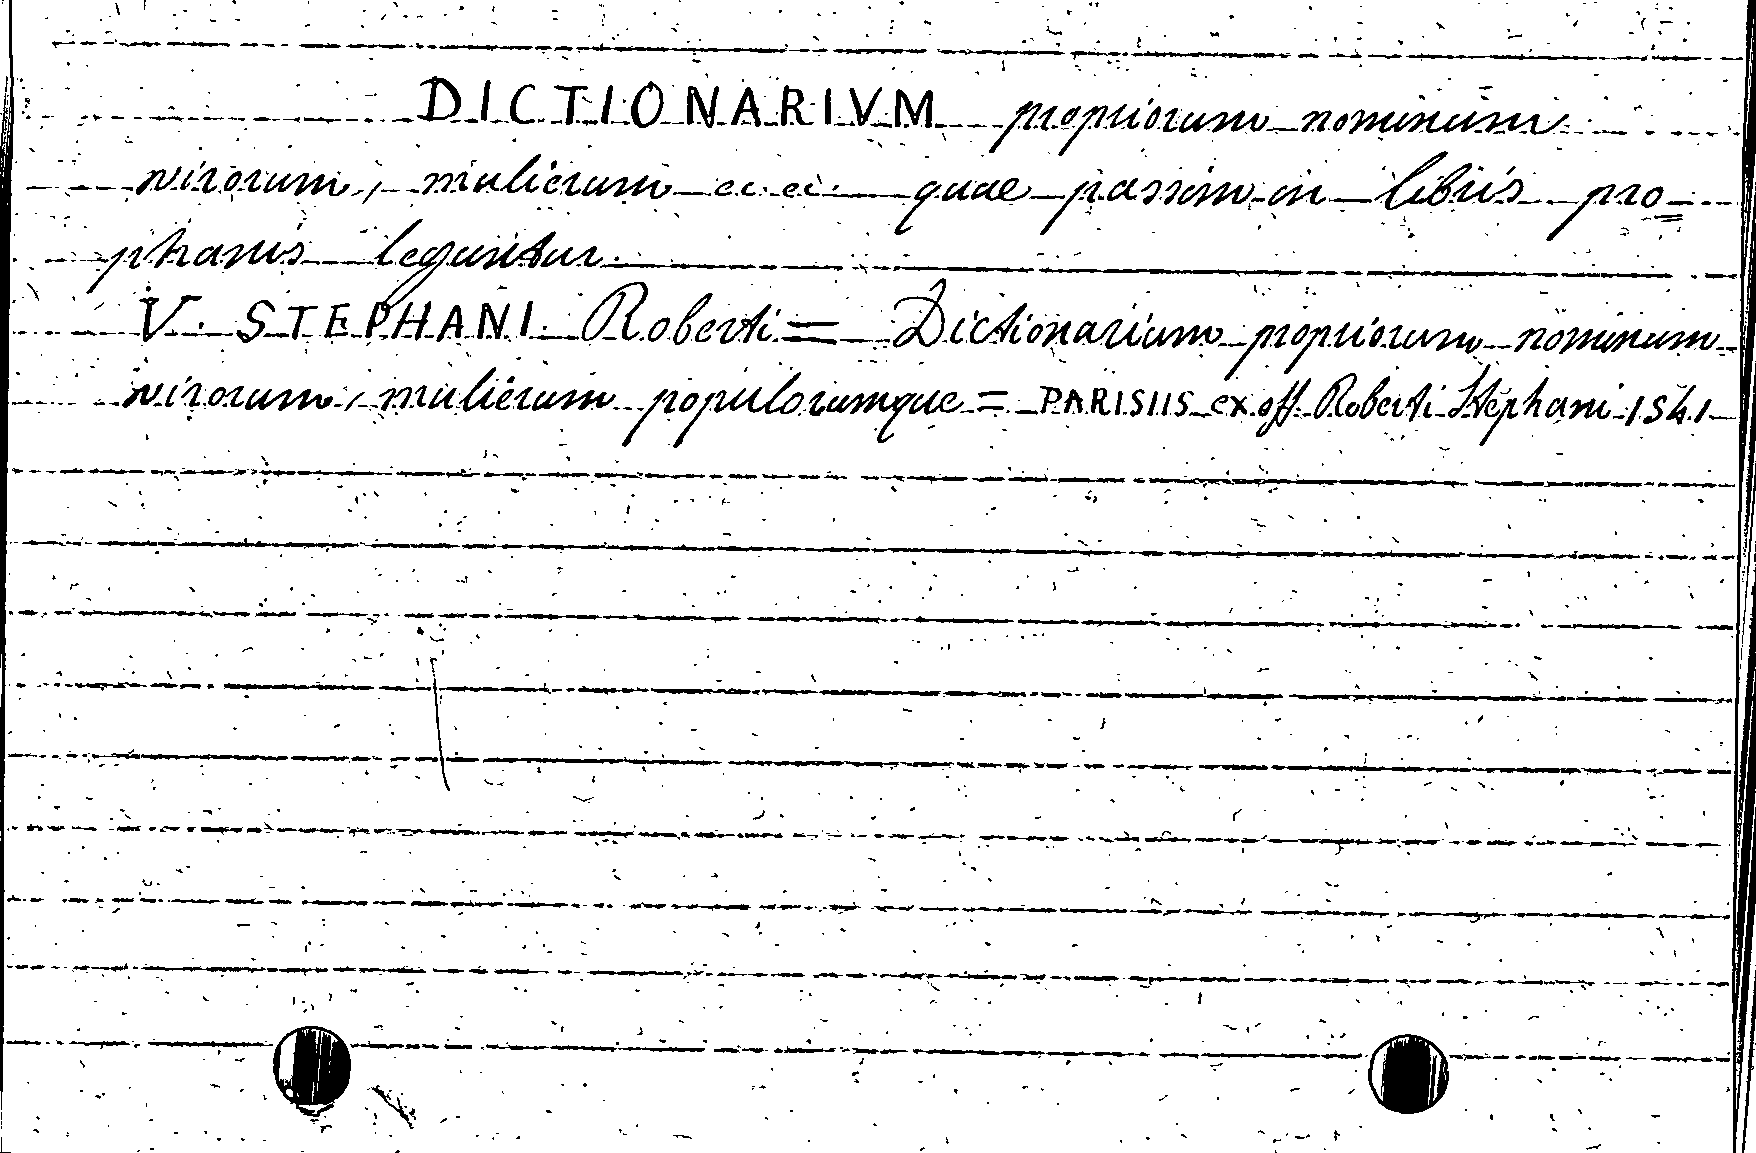 DICTIONARIVM propriorum nominum
virorum, mulierum ec. ec. quae passim in libris pro=
phanis leguntur.
V. STEPHANI Roberti = Dictionarium propriorum nominum
virorum, mulierum populorumque = PARISIIS ex off. Roberti Stephani 1541